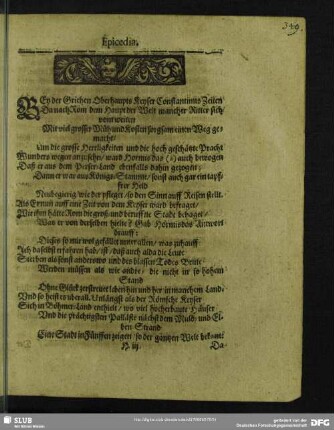 349.
Epicedia.
BEy der Griechen Oberhaupts Keyser Constantinus Zeiten
Da nach Rom dem Haupt der Welt mancher Reiter sich
vom weiten
Mit viel grosser Müh und Kosten sorgsam einen Weg ge-
macht/
Um die grosse Herrligkeiten und die hoch geschönte Pracht
Wunders wegen anzusehn/ ward Hormisdas (a) auch bewogen
Daß er aus dem Perser-Land ebenfalls dahin gezogen:
Dann er war aus Königs-Stamme/ sonst auch gar ein tap-
frer Held
Neubegierig/ wie der pfleget/ so den Sinn auff Reisen stellt.
Als Er nun auff eine Zeit von dem Keyser ward befraget/
Wie ihm hätte Rom die groß und beruffne Stadt behaget/
Was er von derselben hielte? Gab Hormisdas Antwort
drauff:
Dieses so mir wol gefället unter allen/ was zuhauff
Ich daselbst erfahren hab/ ist/ daß auch alda die Leute
Sterben als sonst anderswo und des blassen Todes Beute
Werden müssen als wie andre/ die nicht in so hohem
Stand
Ohne Glück zerstreuet leben hin und her in manchem Land.
Und so heist es überall. Unlängst als der Römsche Keyser
Sich in Böhmer-Land enthielt/ wo viel hocherbaute Häuser
Und die prächtigsten Palläste nächst dem Muld- und El-
ben Strand
Eine Stadt in Fünffen zeigen/ so der gantzen Welt bekant:
H iij
Da-
SLUB
Wir führen Wissen.
gefördert von der
Deutschen Forschungsgemeinschaft
DFG